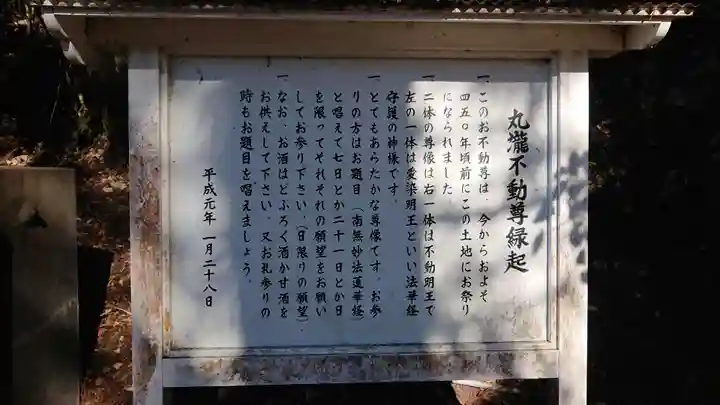 丸瀧不動尊縁起
一、このお不動尊は、今からおよそ
四五〇年頃前にこの土地にお祭り
になられました。
一、二体の尊像は右一体は不動明王で
左の一体は愛染明王といい法華経
守護の神様です。
一、とてもあらたかな尊像です。お参
りの方はお題目（南無妙法蓮華経）
と唱えて七日とか二十一日とか日
を限ってそれぞれの願望をお願い
してお参り下さい。（日限りの願望）
一、なお、お酒はどぶろく酒か甘酒を
お供えして下さい。又お礼参りの
時もお題目を唱えましょう。
平成元年一月二十八日